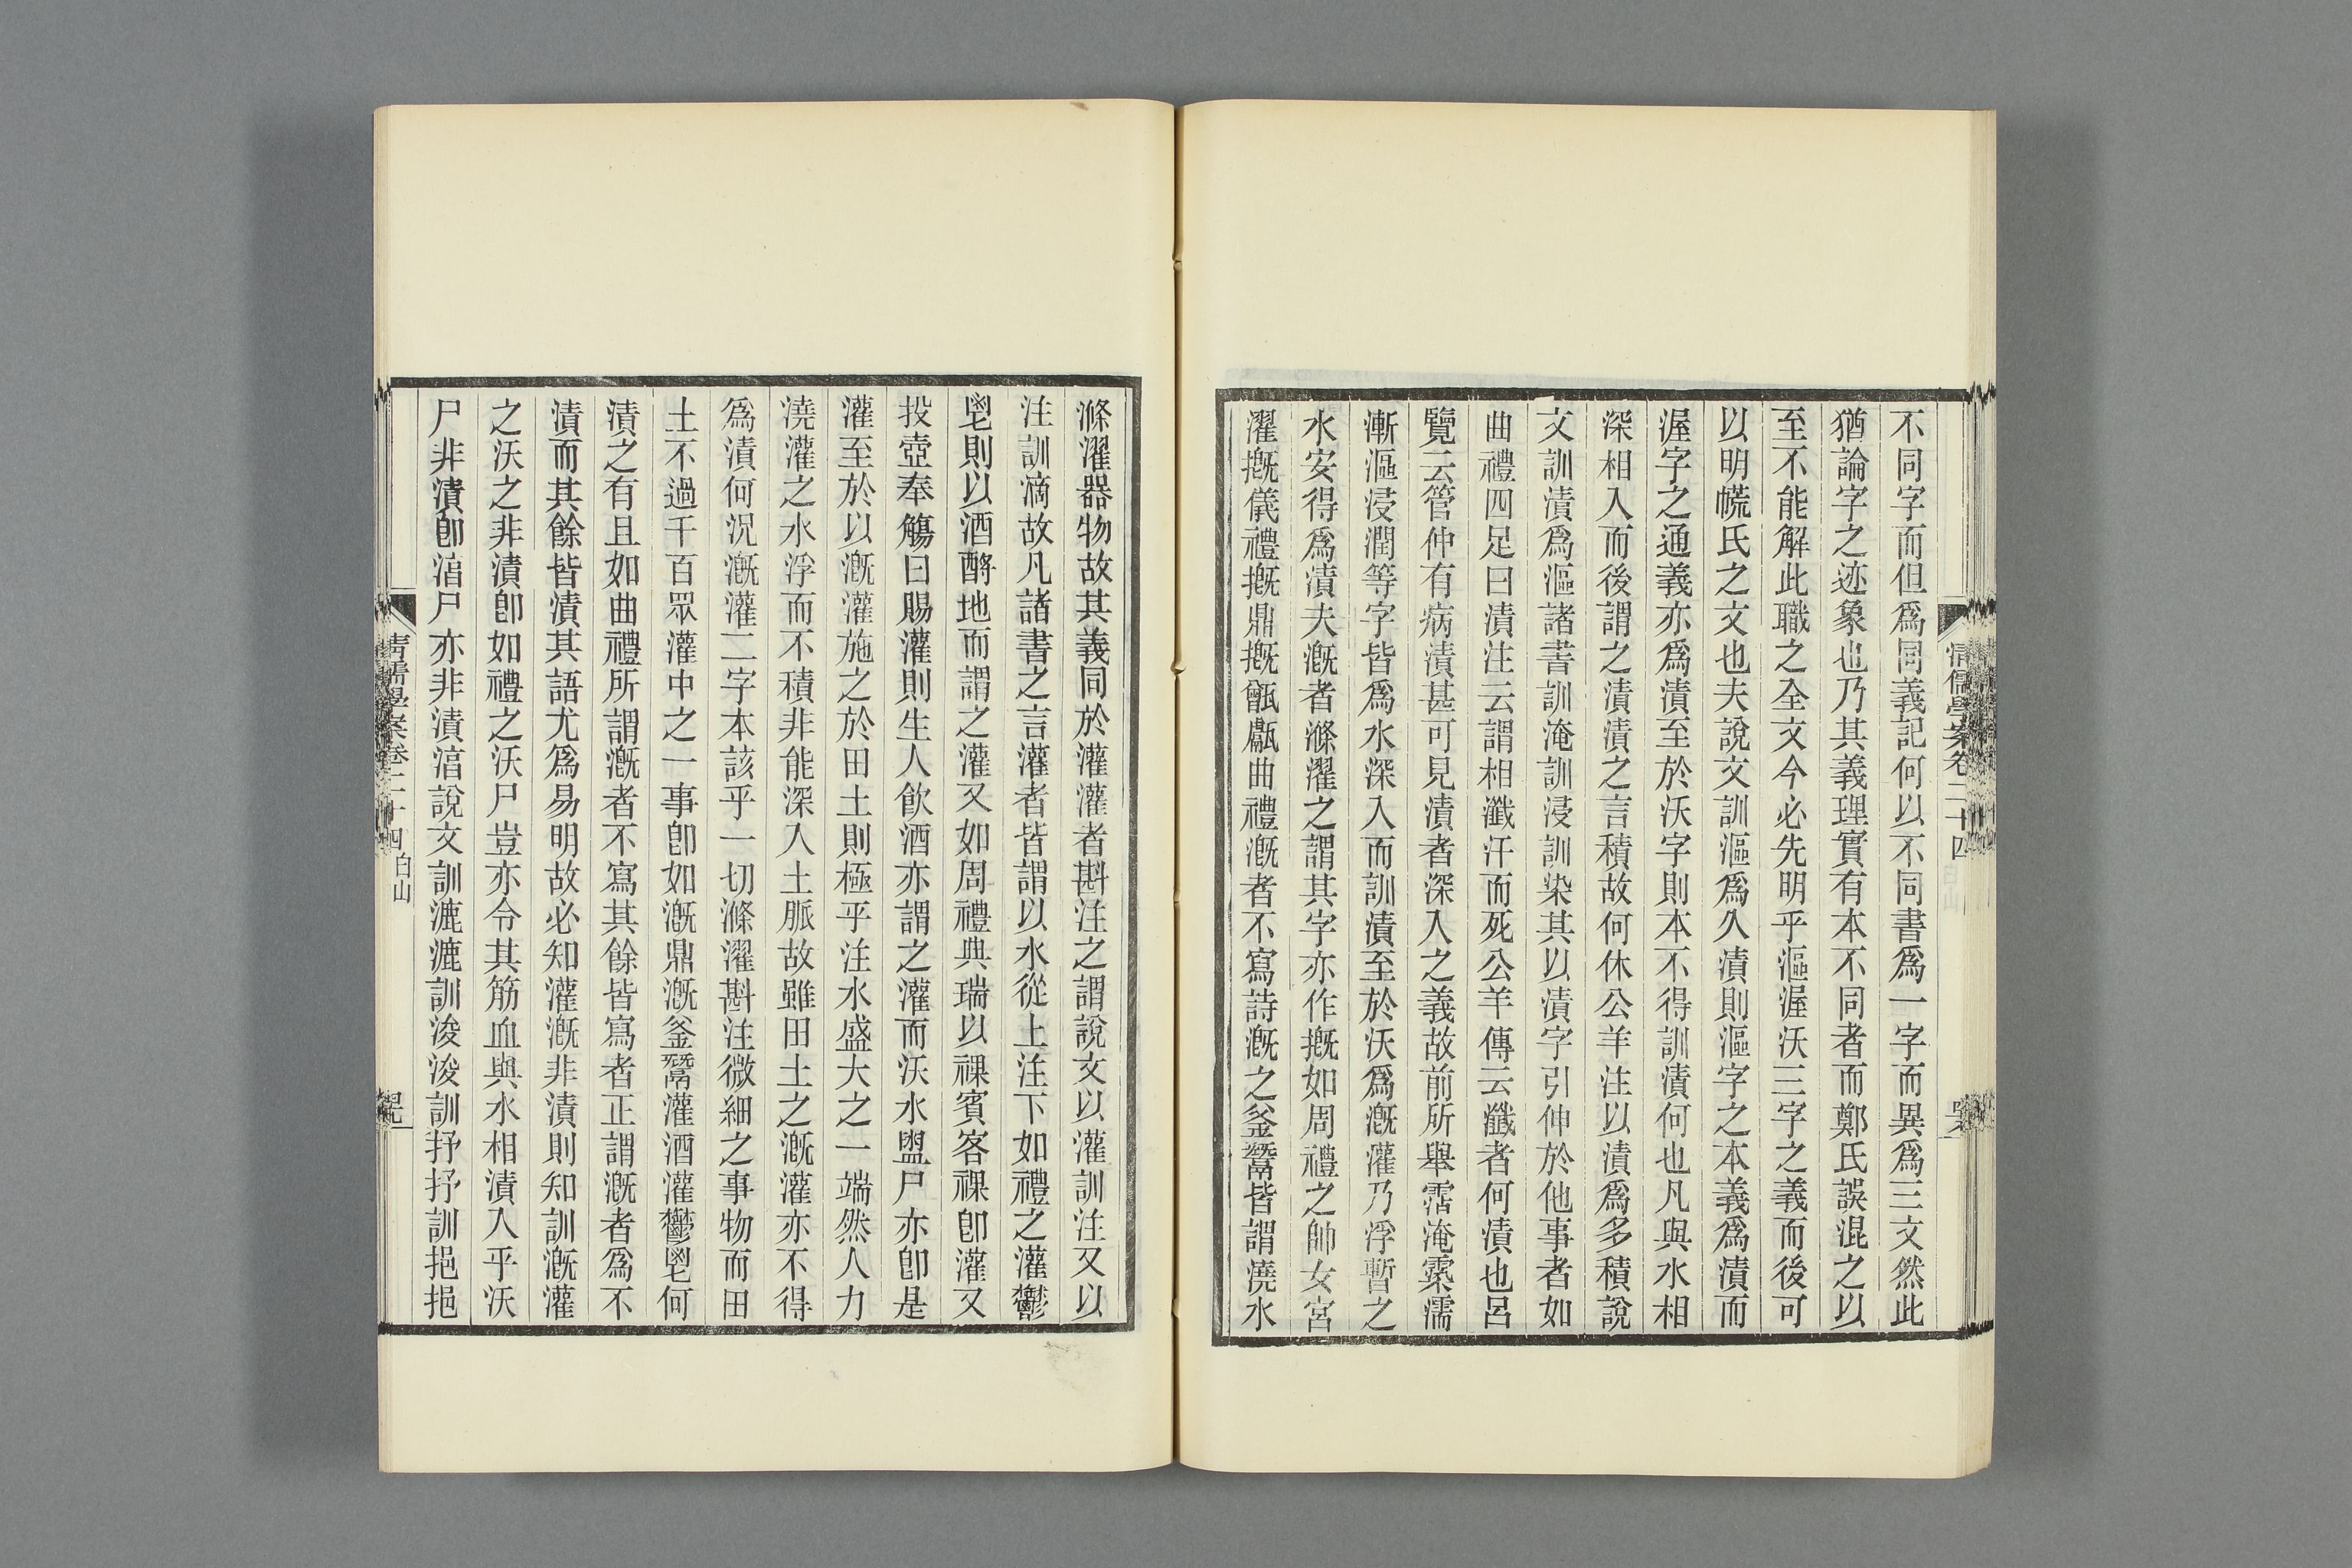 不同字而但爲同義記何以不同書爲一字而異爲三文然此
猶論字之迹象也乃其義理實有本不同者而鄭氏誤混之以
至不能解此職之全文今必先明乎漚渥沃三字之義而後可
以明㡛氏之文也夫說文訓漚爲久漬則漚字之本義爲漬而
渥字之通義亦爲漬至於沃字則本不得訓漬何也凡與水相
深相入而後謂之漬漬之言積故何休公羊注以漬爲多積說
文訓漬爲漚諸書訓淹訓浸訓染其以漬字引伸於他事者如
曲禮四足曰漬注云謂相瀸汙而死公羊傳云瀸者何漬也呂
覽云管仲有病漬甚可見漬者深入之義故前所舉霑淹霂濡
漸漚浸潤等字皆爲水深入而訓漬至於沃爲漑灌乃浮暫之
水安得爲漬夫漑者滌濯之謂其字亦作摡如周禮之帥女宮
濯摡儀禮摡鼎摡甑甗曲禮漑者不寫詩漑之釜鬵皆謂澆水
清儒學案卷二十四
滌濯器物故其義同於灌灌者斟注之謂說文以灌訓注又以
注訓滴故凡諸書之言灌者皆謂以水從上注下如禮之灌鬱
鬯則以酒酹地而謂之灌又如周禮典瑞以祼賓客祼卽灌又
投壺奉觴曰賜灌則生人飮酒亦謂之灌而沃水盥尸亦卽是
灌至於以漑灌施之於田土則極乎注水盛大之一端然人力
澆灌之水浮而不積非能深入土脈故雖田土之漑灌亦不得
爲漬何況漑灌二字本該乎一切滌濯斟注微細之事物而田
土不過千百眾灌中之一事卽如漑鼎漑釜鬵灌酒灌鬱鬯何
漬之有且如曲禮所謂漑者不寫其餘皆寫者正謂漑者爲不
漬而其餘皆漬其語尤爲易明故必知灌漑非漬則知訓漑灌
之沃之非漬卽如禮之沃尸豈亦令其筋血與水相漬入乎沃
尸非漬卽湆尸亦非漬湆說文訓漉漉訓浚浚訓抒抒訓挹挹
清儒學案卷二十四 白山